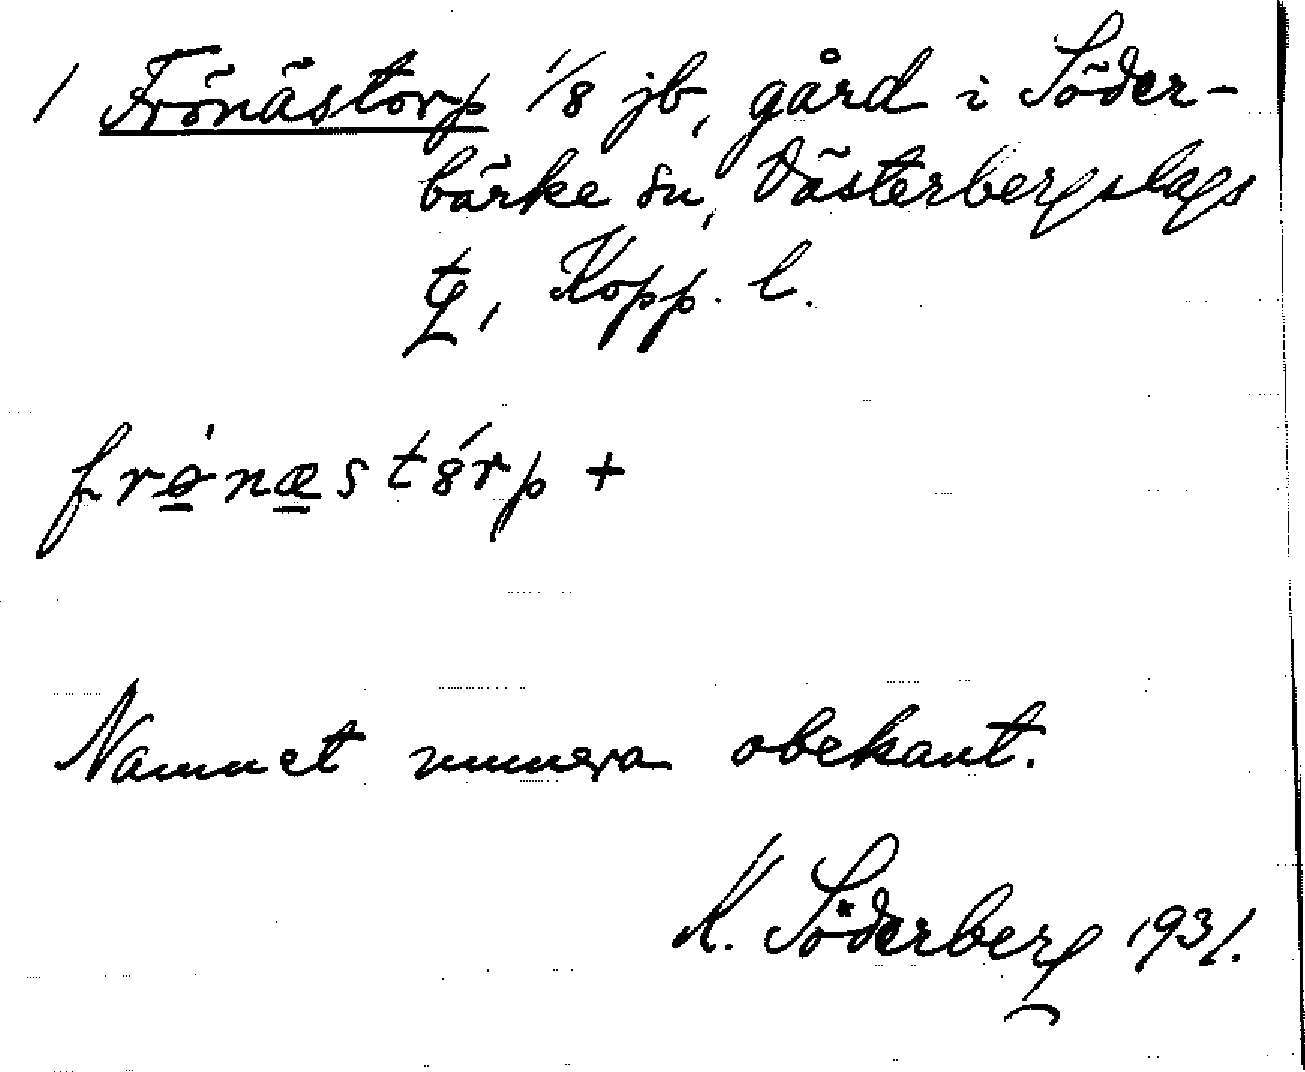 1 Frönästorp 1/8 jb, gård i Söder-
bärke sn, Västerbergslags
tg, Kopp. l.
frǿ̱næ̱st8́rp +
Namnet numera obekant.
K. Söderberg 1931.